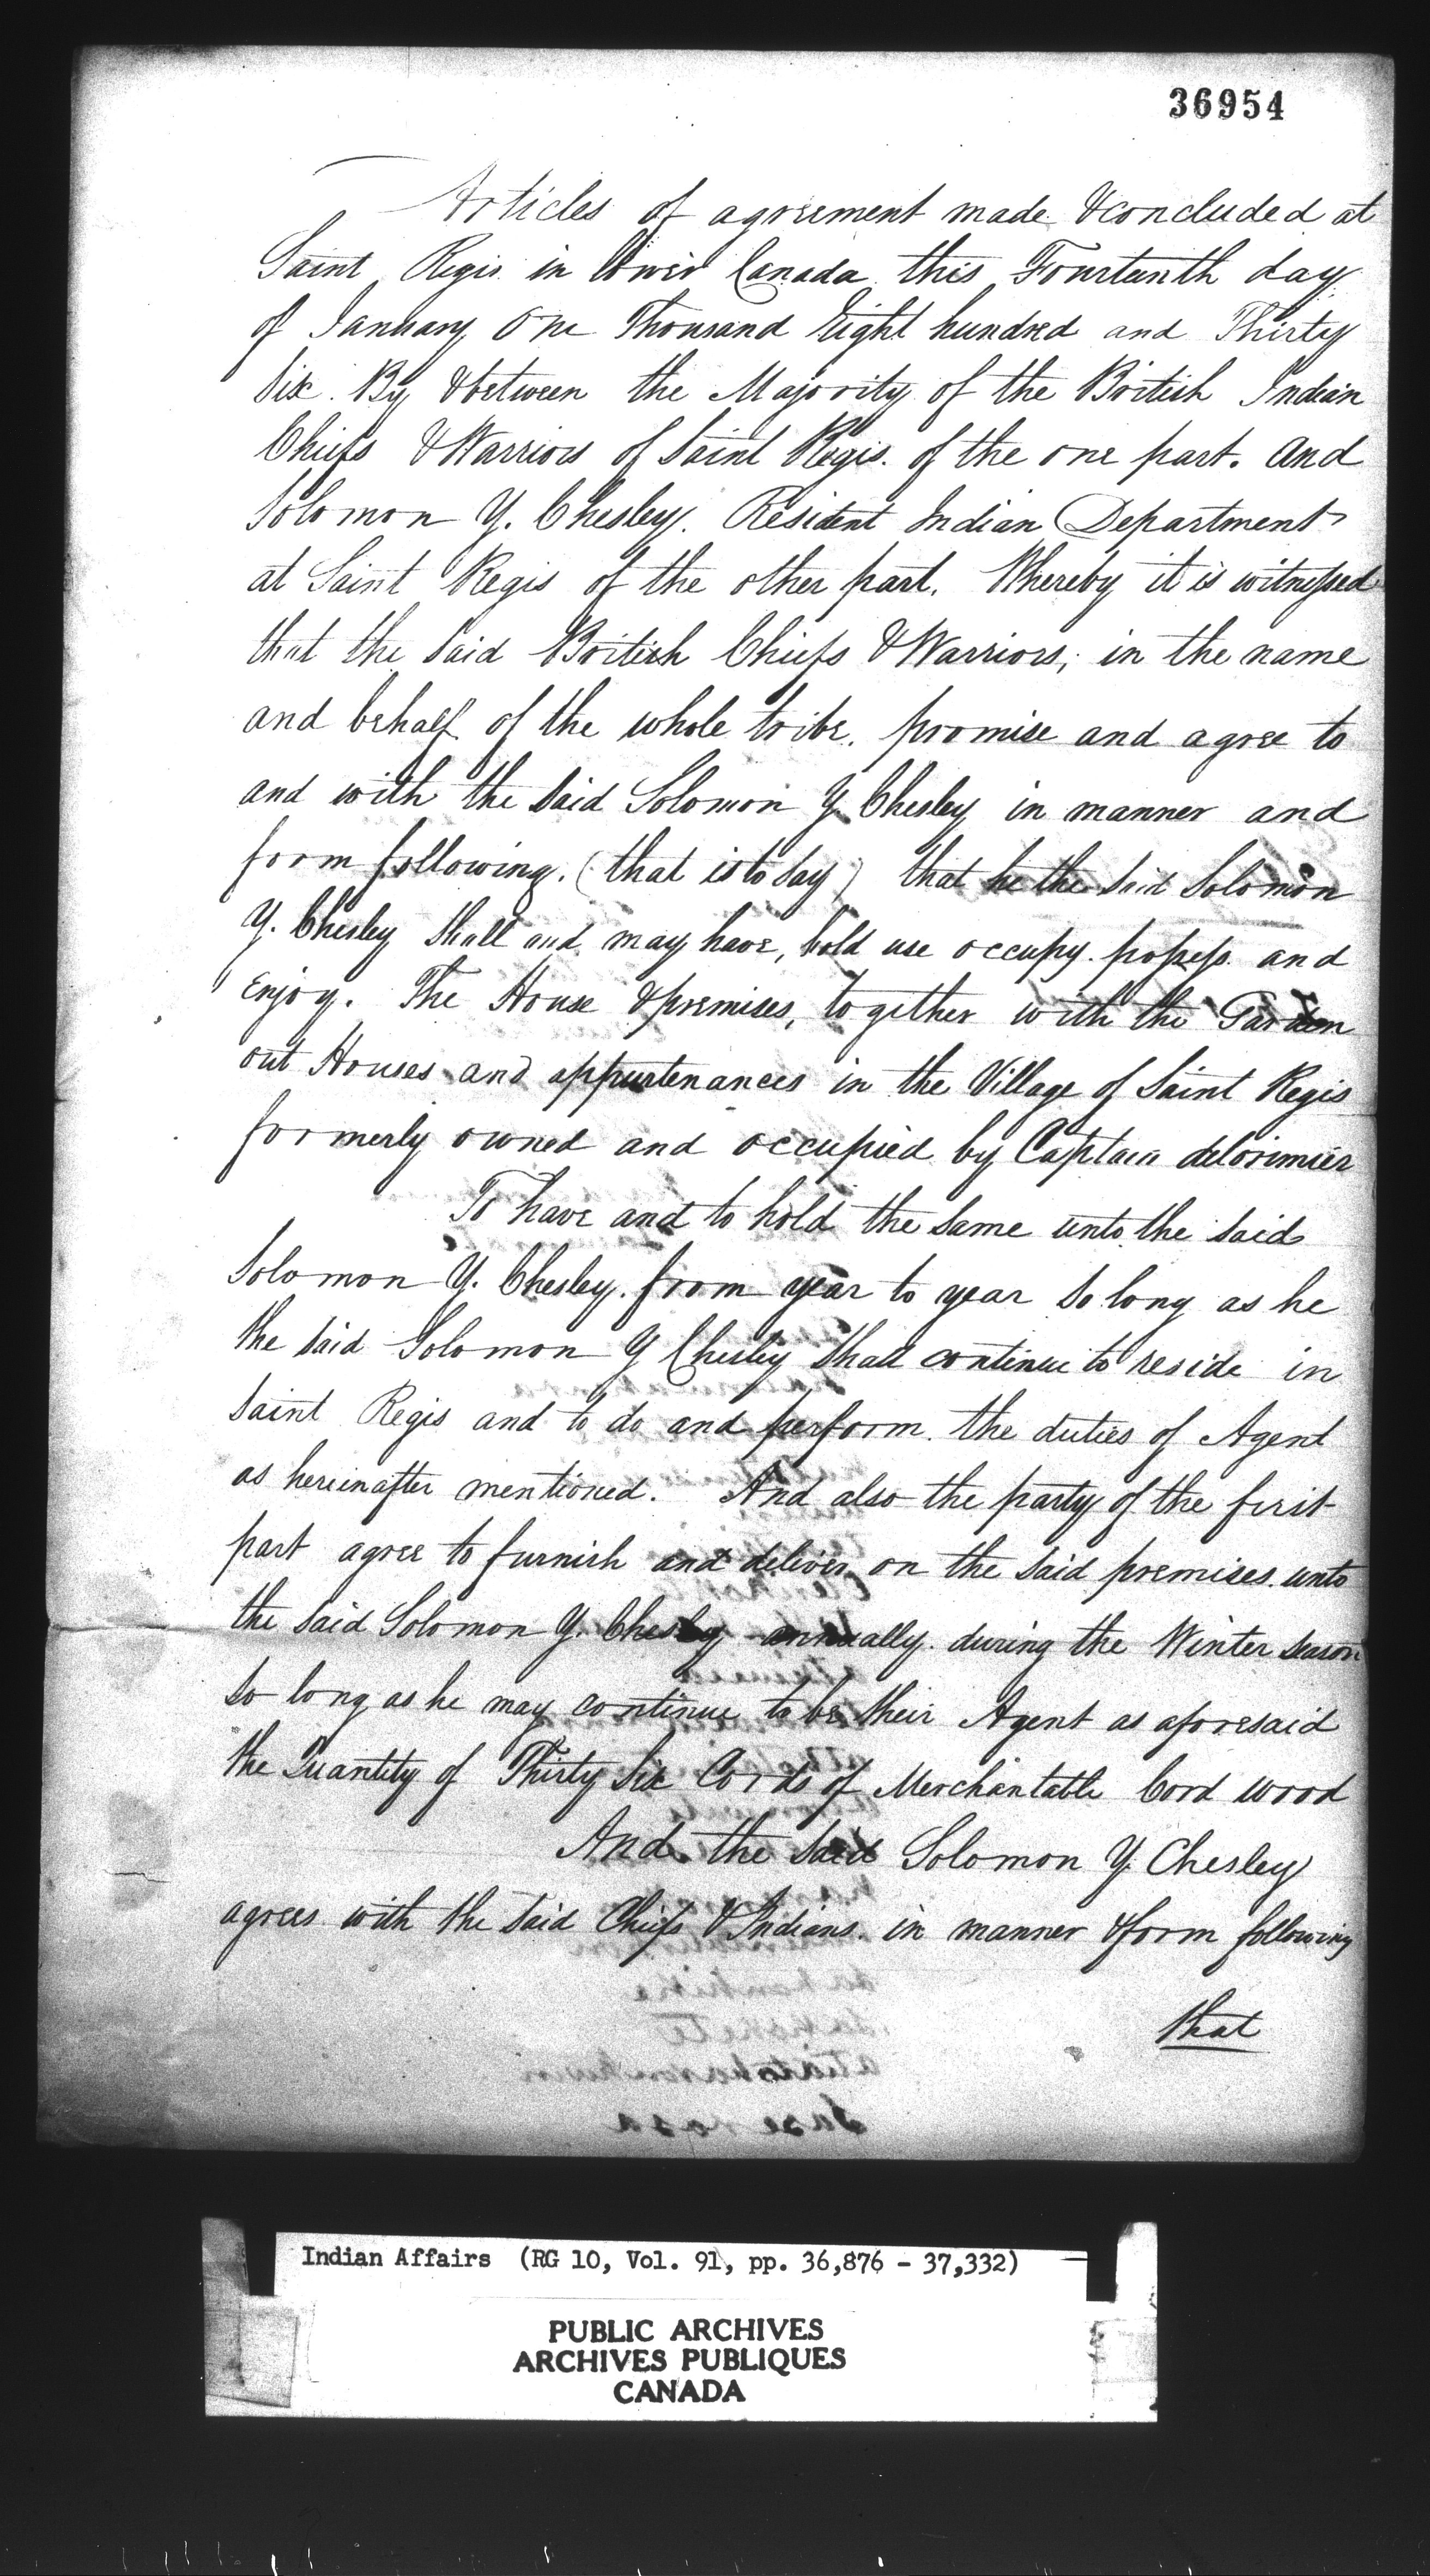 36954
Articles of agreement made & concluded at
Saint Regis in lower Canada this Fourteenth day
of January One Thousand Eight hundred and Thirty
Six. By & between the Majority of the British Indian
Chiefs & Warriors of Saint Regis. of the one part. and
Solomon Y. Chesley. Resident Indian Department
at Saint Regis of the other part. Whereby it is witnessed
that the said British Chiefs & Warriors, in the name
and behalf of the whole tribe. promise and agree to
and with the said Solomon Y Chesley in manner and
form following. (that is to say) that he the said Solomon
Y. Chesley shall and may have, hold use occupy. possess. and
Enjoy. The House & premises, together with the Garden
out Houses and appurtenances in the Village of Saint Regis
formerly owned and occupied by Captain delorimier
To have and to hold the same unto the said
Solomon Y. Chesley. from year to year so long as he
the said Solomon Y Chesley shall continue to reside in
Saint Regis and to do and perform. the duties of Agent
as hereinafter mentioned. And also the party of the first
part agree to furnish and deliver on the said premises. unto
the said Solomon Y. Chesley annually. during the Winter season
so long as he may continue to be their Agent as aforesaid
the Quantity of Thirty Six Cords of Merchantable Cord wood
And the said Solomon Y. Chesley
agrees with the said Chiefs & Indians. in manner & form following
that
Indian Affairs (RG 10, Vol. 91, pp. 36,876 - 37,332)
PUBLIC ARCHIVES
ARCHIVES PUBLIQUES
CANADA